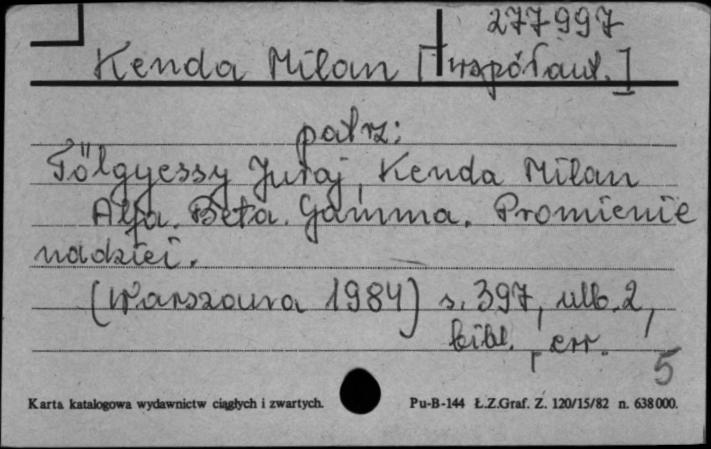 277997
Kenda Milan [współaut.]
patrz:
Fölgyessy Juraj, Kenda Milan
Alfa. Beta. Gamma. Promienie
nadziei.
(Warszawa 1984) s. 397, ulb. 2,
bibl., err.
5
Karta katalogowa wydawnictw ciągłych i zwartych. Pu-B-144 Ł.Z.Graf. Z. 120/15/82 n. 638000.